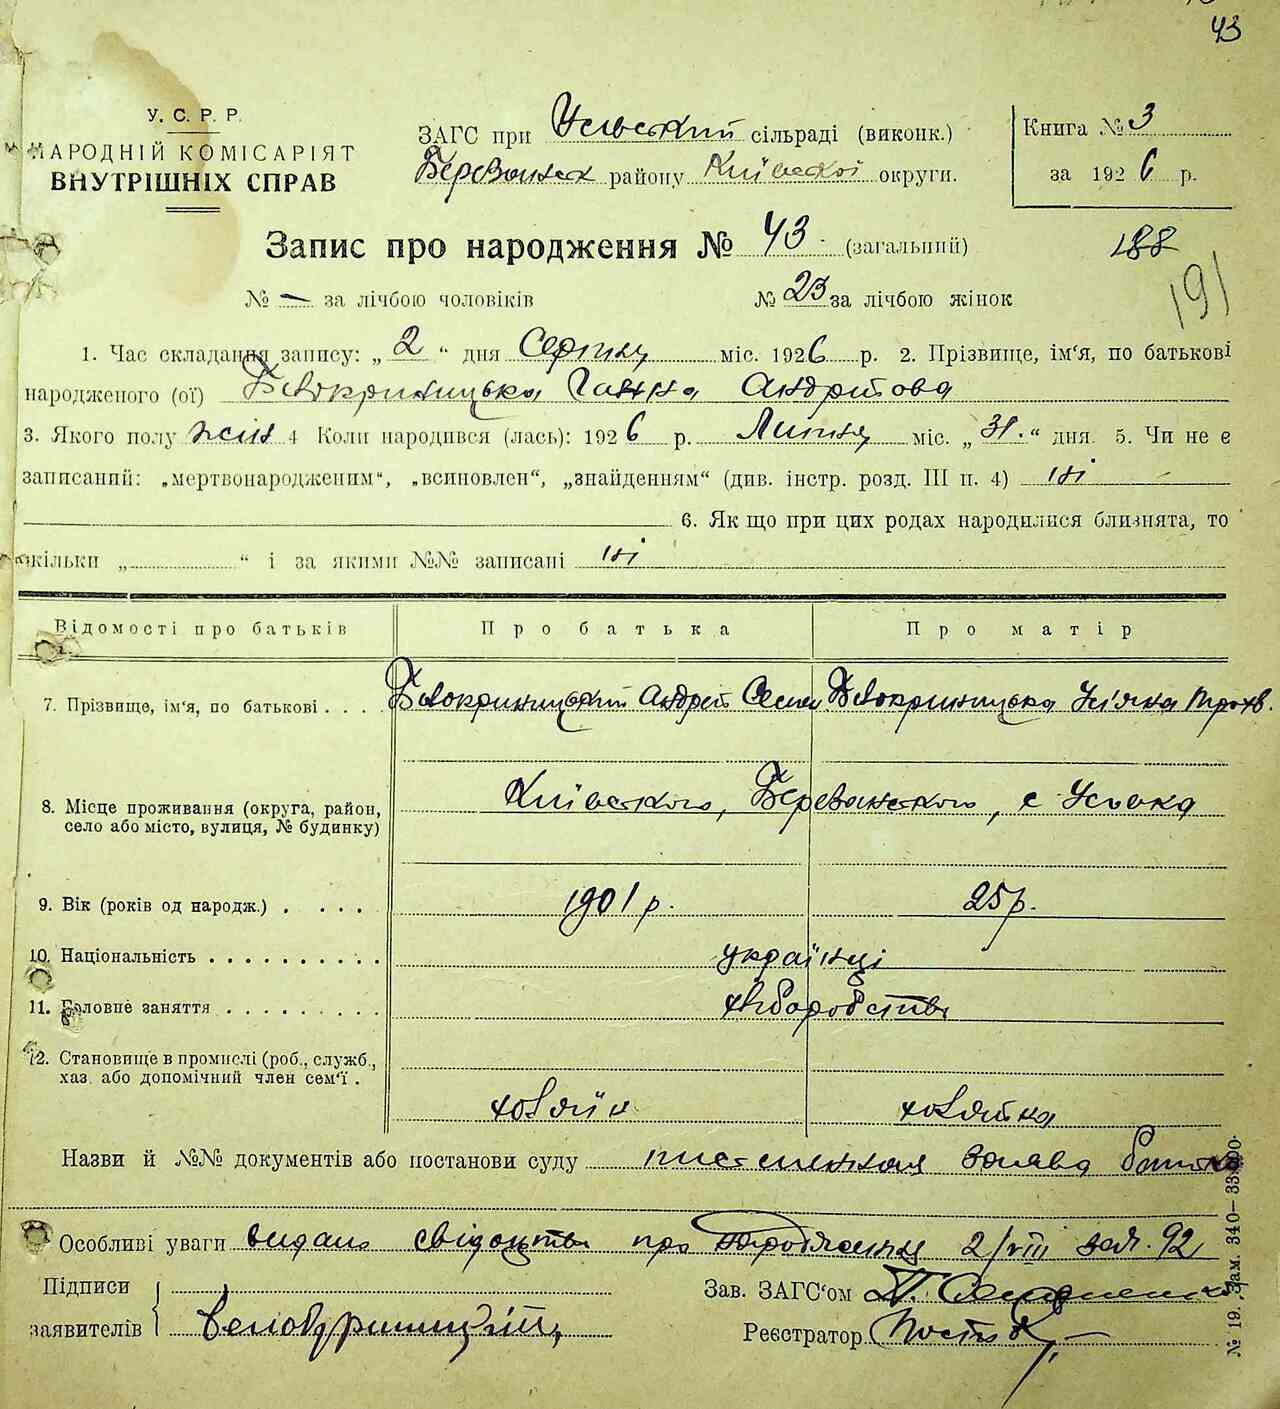 43
У. С. Р. Р.
НАРОДНІЙ КОМІСАРІЯТ
ВНУТРІШНІХ СПРАВ
ЗАГС при сільраді (виконк.)
району Київскої округи.
Книга № 3
за 1926 р.
Запис про народження № 43 (загальний)
188
191
№ — за лічбою чоловіків № 23 за лічбою жінок
1. Час складання запису: „2“ дня Серпня міс. 1926 р. 2. Прізвище, ім‘я, по батькові
народженого (ої) Білокриницька Ганна Андрійова
3. Якого полу жін 4 Коли народився (лась): 1926 р. Липня міс. „31.“ дня. 5. Чи не є
записаний: „мертвонародженим“, „всиновлен“, „знайденням“ (див. інстр. розд. III п. 4) ні
6. Як що при цих родах народилися близнята, то
скільки „ “ і за якими №№ записані ні
Відомості про батьків Про батька Про матір
7. Прізвище, ім‘я, по батькові . . . . Білокриницький Андрій Семен Білокриницька Ул‘яна
8. Місце проживання (округа, район,
село або місто, вулиця, № будинку)
Київського, с
9. Вік (років од народж.) . . . . . 1901 р. 25 р.
10. Національність . . . . . . . . . . українці
11. Головне заняття . . . . . . . . . хліборобство
12. Становище в промислі (роб., служб.,
хаз. або допомічний член сем‘ї .
хозяїн хозяйка
Назви й №№ документів або постанови суду заява батька
Особливі уваги видано свідоцтво про народження 2/VIII за № 92
Підписи
заявителів
Зав. ЗАГС‘ом
Реєстратор
№ 19. Зам. 340—